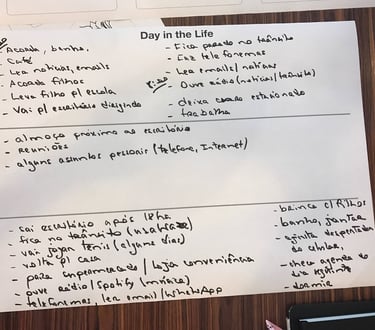 Day in the Life
- Acorda, banho.
- Café
- Lea notícias, emails
- Acorda filhos
- Leva filho pl escola
- Vai pl escritório dirigindo
- Fica parado no trânsito
- Faz telefonemas
- Lea emails/notícias
- Ouve rádio (notícias/trânsito)
- deixa carro estacionado
- trabalha
- almoço próximo ao escritório
- Reuniões
- alguns assuntos pessoais (telefone, Internet)
- sai escritório após 18hs
- fica no trânsito
- vai jogar tênis (alguns dias)
- volta pl casa
- supermercado/loja conveniência
- ouve rádio/Spotify (música)
- telefonemas, lea email/WhatsApp
- brinca c/ filhos
- banho, jantar
- despertador do celular,
- checa agenda do dia seguinte
- dormir